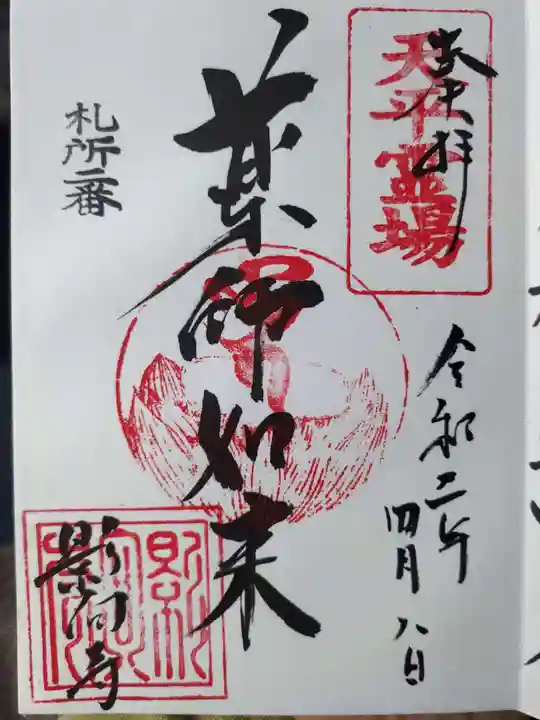 奉拝
天平霊場
令和二年
四月八日
薬師如来
札所二番
影向寺